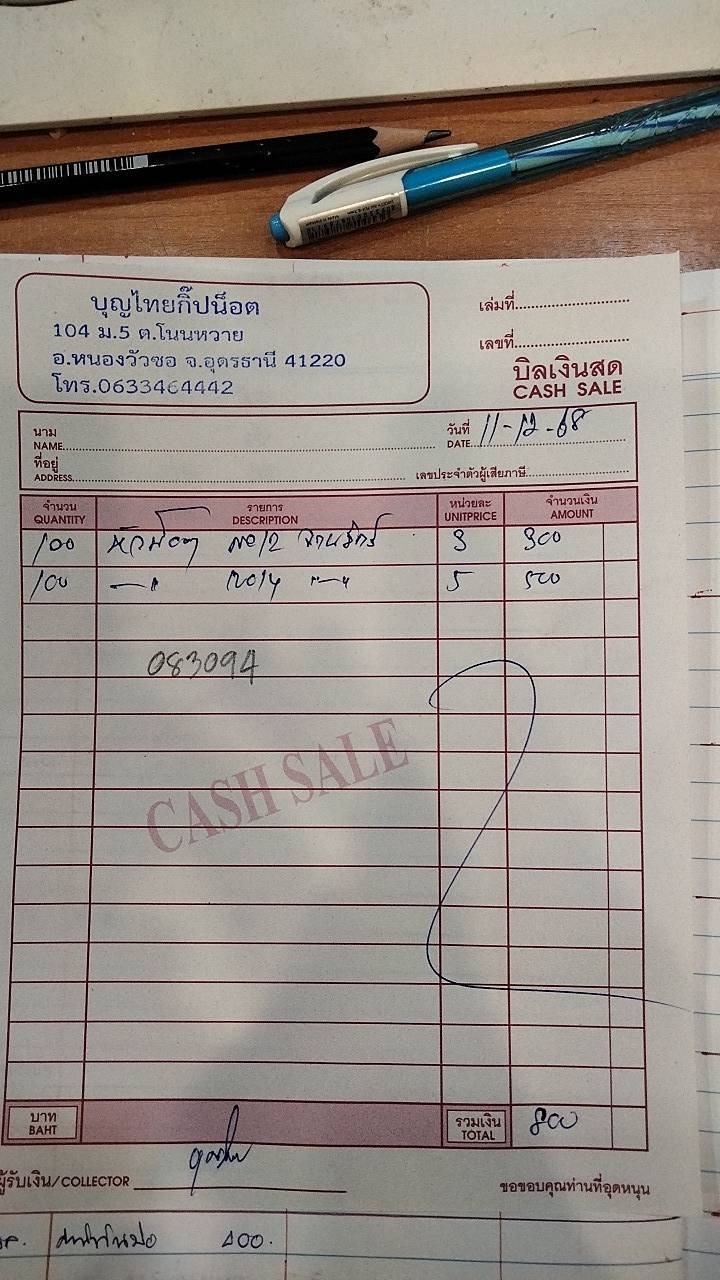 บุญไทยกิ๊ปน็อต
104 ม.5 ต.โนนหวาย
อ.หนองวัวซอ จ.อุดรธานี 41220
โทร.0633464442
เล่มที่
เลขที่
บิลเงินสด
CASH SALE
นาม
NAME
วันที่
DATE 11-12-68
ที่อยู่
ADDRESS
เลขประจำตัวผู้เสียภาษี
จำนวน รายการ หน่วยละ จำนวนเงิน
QUANTITY DESCRIPTION UNITPRICE AMOUNT
100 หัวน็อต No12 3 300
100 No14 5 500
083094
CASH SALE
บาท รวมเงิน
BAHT TOTAL 800
ผู้รับเงิน/COLLECTOR
ขอขอบคุณท่านที่อุดหนุน
400.